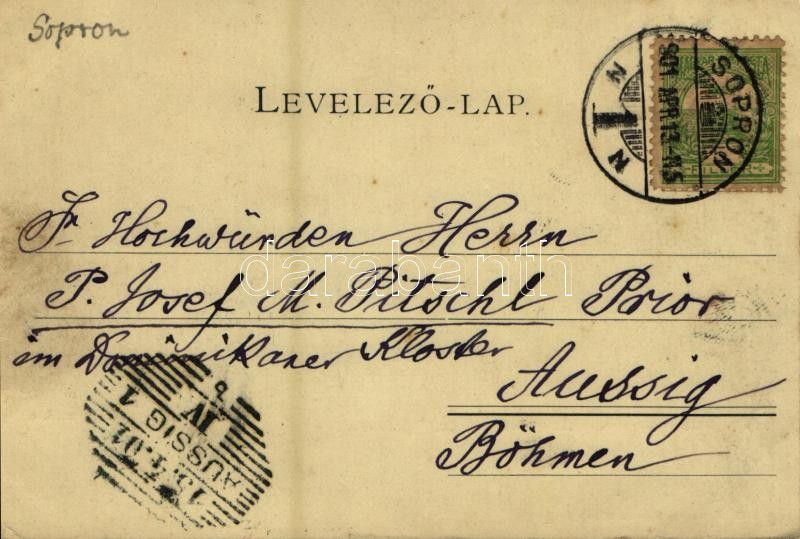 Sopron
LEVELEZŐ-LAP.
SOPRON
901 APR 12
N 1 N
FILLÉR
Sr Hochwürden Herrn
P. Josef M. Pitschl Prior
im Dominikaner Kloster
Aussig
Böhmen
AUSSIG 1
IV
darabanth